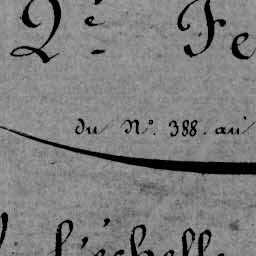 2.e Fe
du N°. 388. au
l'échelle